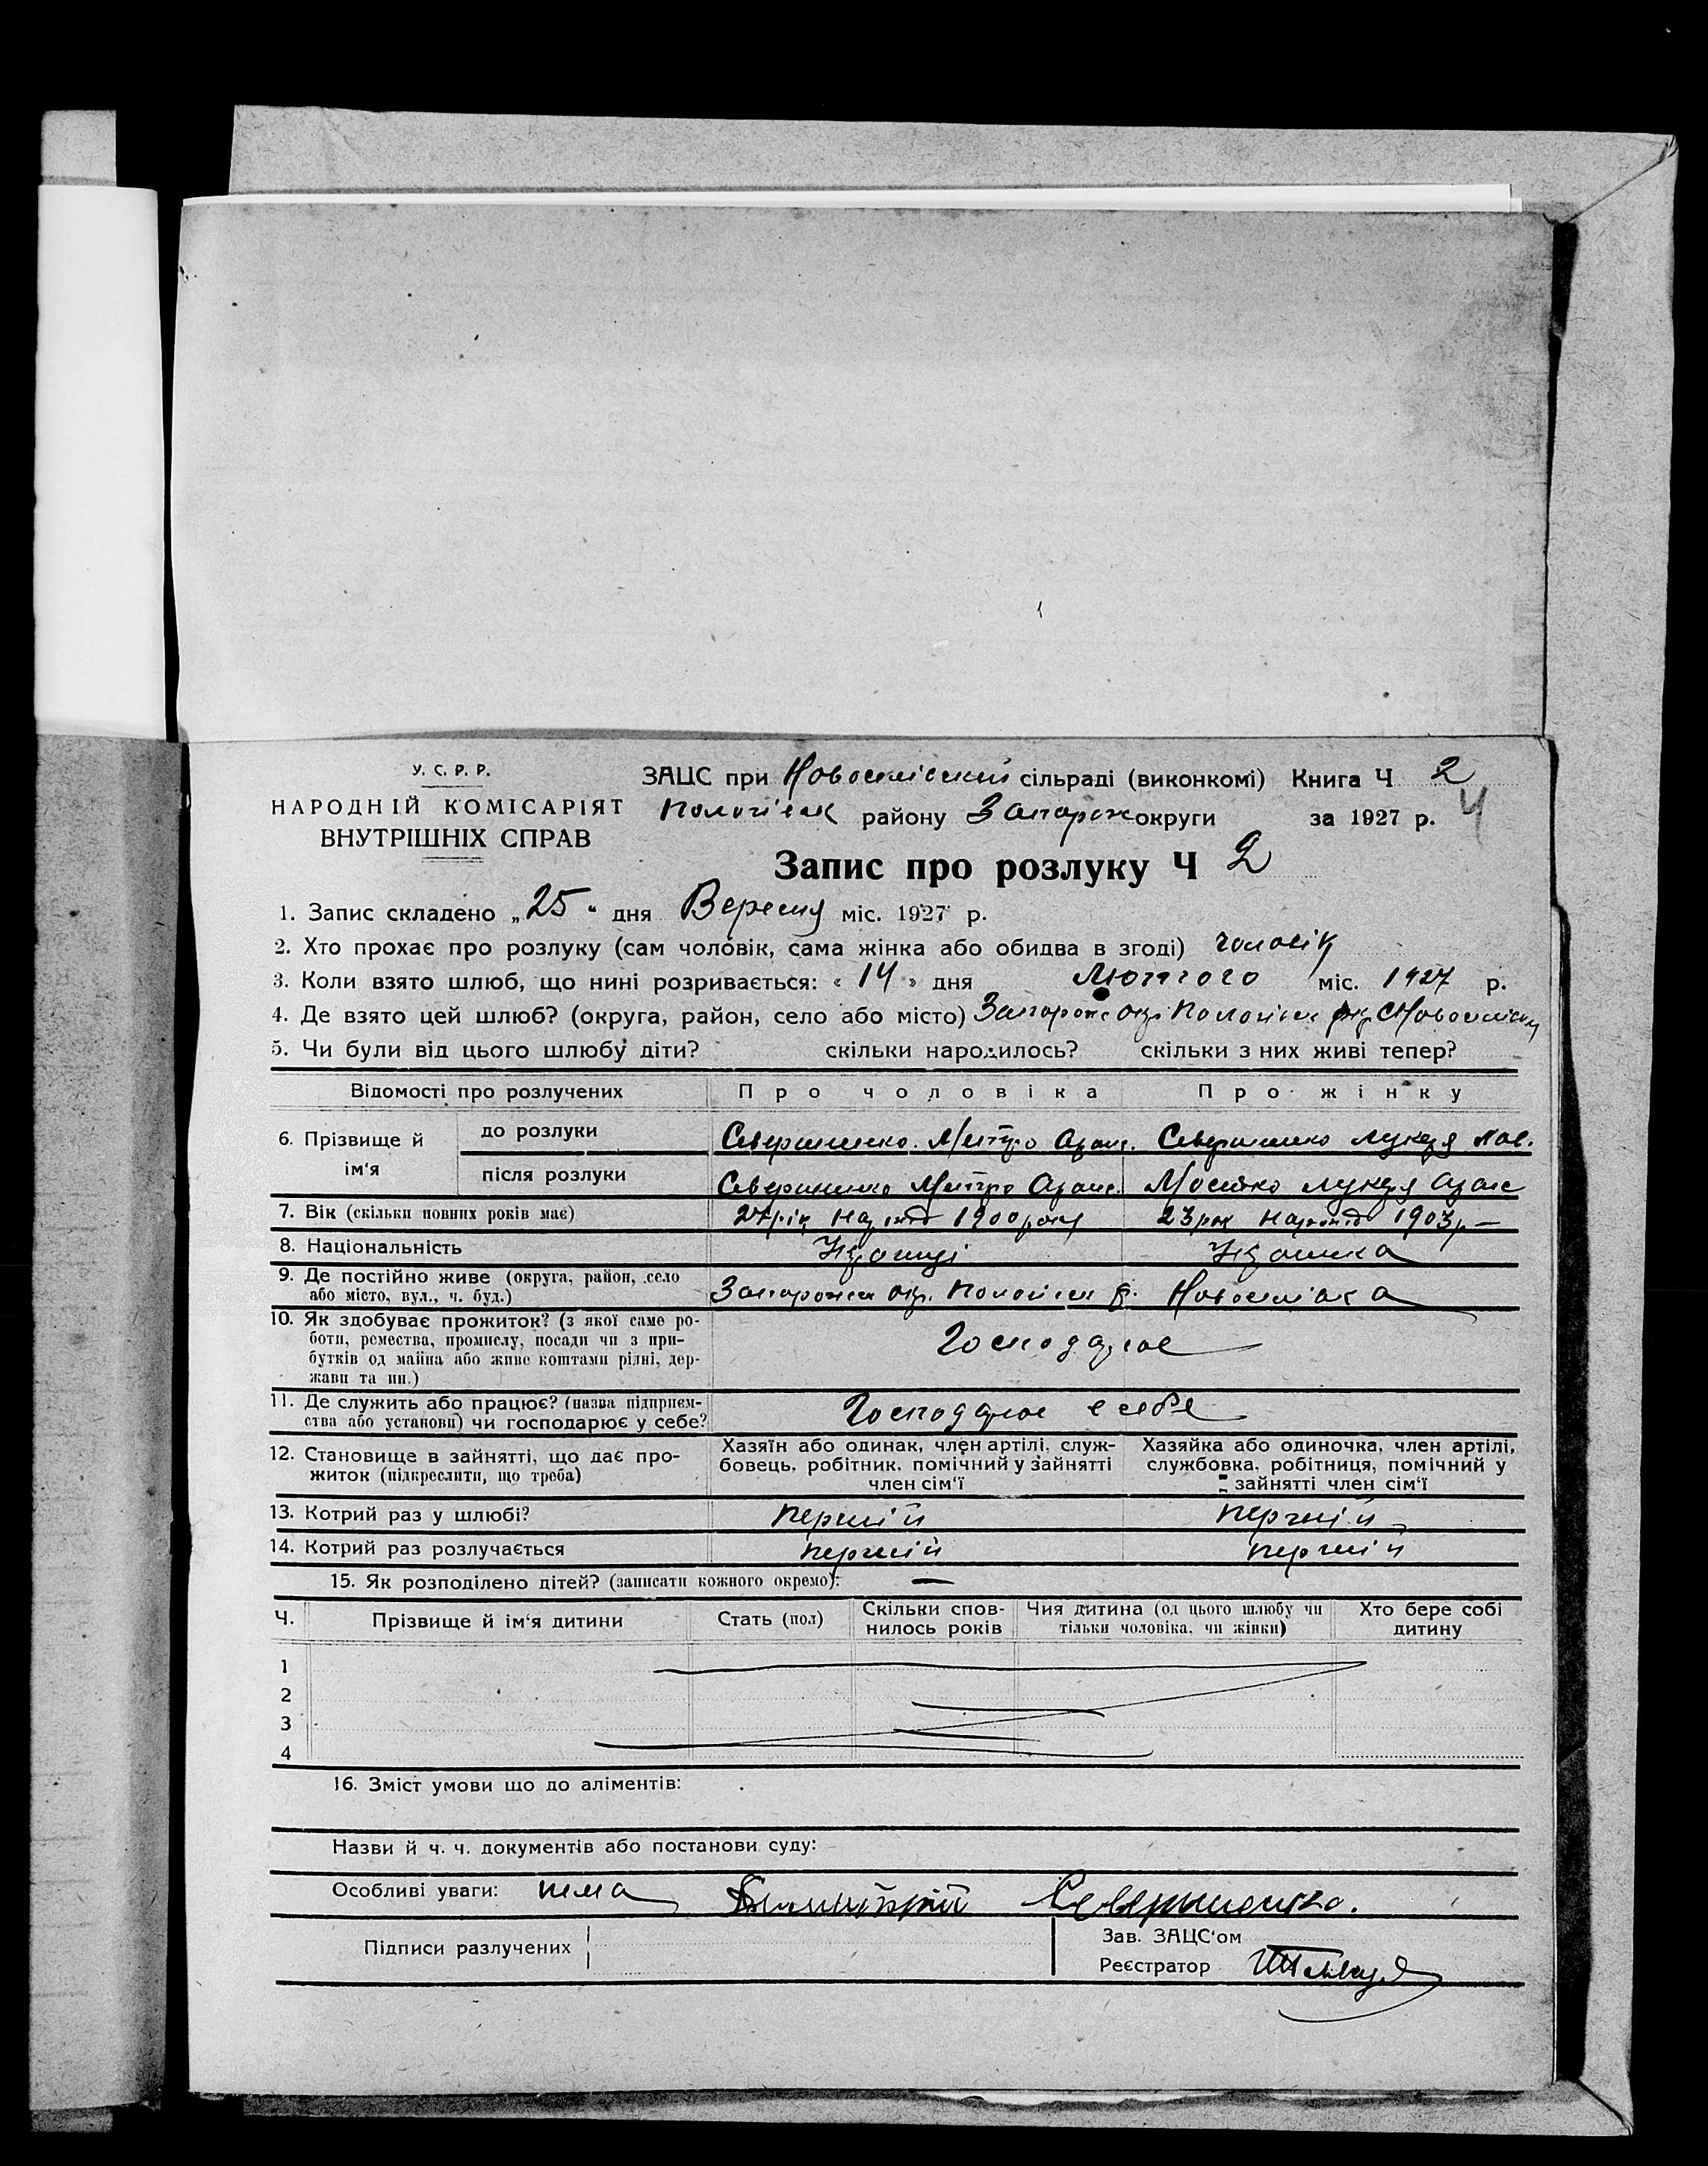 У. С. Р. Р.
НАРОДНІЙ КОМІСАРІЯТ
ВНУТРІШНІХ СПРАВ
ЗАЦС при Новоселівській сільраді (виконкомі) Книга Ч 2
Пологівськ району Запорож округи за 1927 р. 4
Запис про розлуку Ч 2
1. Запис складено „25“ дня Вересня міс. 1927 р.
2. Хто прохає про розлуку (сам чоловік, сама жінка або обидва в згоді) чоловік
3. Коли взято шлюб, що нині розривається: « 14 » дня Лютого міс. 1927 р.
4. Де взято цей шлюб? (округа, район, село або місто) Запорож окр Пологівськ
5. Чи були від цього шлюбу діти? скільки народилось? скільки з них живі тепер?
Відомості про розлучених Про чоловіка Про жінку
6. Прізвище й ім‘я
до розлуки Севериненко Митро Севериненко Лукеря
після розлуки Севериненко Митро Лукеря
7. Вік (скільки повних років має) 27 рік 1900 року 23 рок 1903 р. —
8. Національність
9. Де постійно живе (округа, район, село
або місто, вул., ч. буд.) Запорожск окр. Пологівск р. Новоселівка
10. Як здобуває прожиток? (з якої саме ро-
боти, ремества, промислу, посади чи з при-
бутків од майна або живе коштами рідні, дер-
жави та ин.)
Господарює
11. Де служить або працює? (назва підприєм-
ства або установи) чи господарює у себе?
Господарює в себе
12. Становище в зайнятті, що дає про-
житок (підкреслити, що треба)
Хазяїн або одинак, член артілі, служ-
бовець, робітник, помічний у зайнятті
член сім‘ї
Хазяйка або одиночка, член артілі,
службовка, робітниця, помічний у
зайнятті член сім‘ї
13. Котрий раз у шлюбі? перший перший
14. Котрий раз розлучається перший перший
15. Як розподілено дітей? (записати кожного окремо): —
Ч. Прізвище й ім‘я дитини Стать (пол) Скільки спов-
нилось років Чия дитина (од цього шлюбу чи
тільки чоловіка, чи жінки) Хто бере собі
дитину
1
2
3
4
16. Зміст умови що до аліментів:
Назви й ч. ч. документів або постанови суду:
Особливі уваги: нема Северыненко.
Підписи разлучених
Зав. ЗАЦС‘ом
Реєстратор